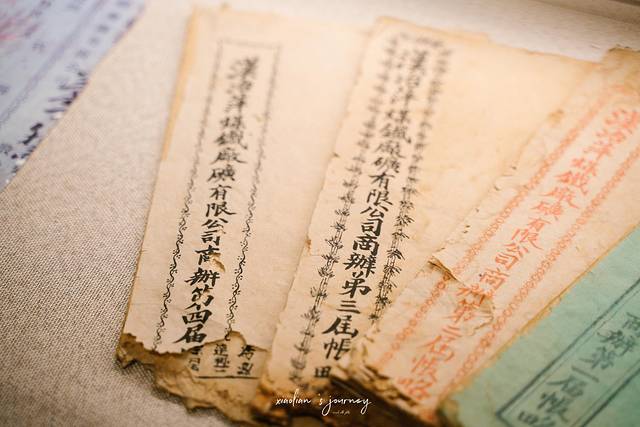 漢冶萍煤鐵廠礦有限公司商辦第四屆
漢冶萍煤鐵廠礦有限公司商辦第三屆帳
漢冶萍煤鐵廠礦有限公司商辦第二屆帳略
商辦第一屆帳略
xiaolian 's journey